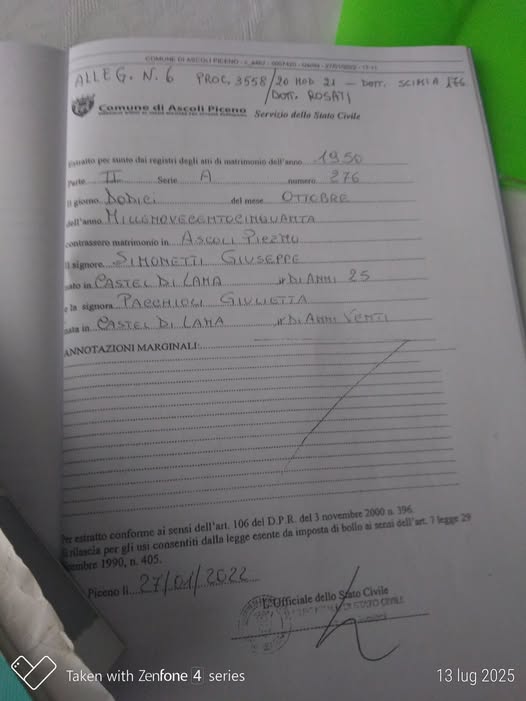 COMUNE DI ASCOLI PICENO
27/01/2022 - 11:11
ALLEG. N. 6 PROC. 3558/20 MOD 21 - DOTT. SCIMIA 176
/DOTT. ROSATI
Comune di Ascoli Piceno
Servizio dello Stato Civile
Estratto per sunto dai registri degli atti di matrimonio dell'anno 1950
Parte II Serie A numero 276
Il giorno DODICI del mese OTTOBRE
dell'anno MILLENOVECENTOCINQUANTA
contrassero matrimonio in ASCOLI PICENO
il signore SIMONETTI GIUSEPPE
nato in CASTEL DI LAMA DI ANNI 25
e la signora PACCHIOLI GIULIETTA
nata in CASTEL DI LAMA DI ANNI VENTI
ANNOTAZIONI MARGINALI:
Per estratto conforme ai sensi dell'art. 106 del D.P.R. del 3 novembre 2000 n. 396.
rilascia per gli usi consentiti dalla legge esente da imposta di bollo ai sensi dell'art. 7 legge 29
embre 1990, n. 405.
Piceno lì 27/01/2022
L'Ufficiale dello Stato Civile
DI STATO CIVILE
Taken with Zenfone 4 series
13 lug 2025